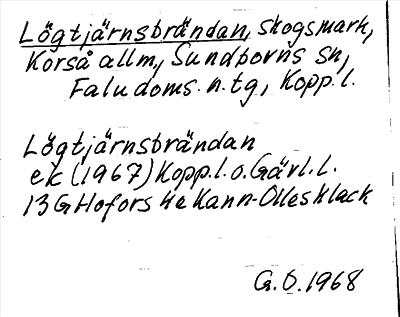 Lögtjärnsbrändan, skogsmark,
Korså allm, Sundborns sn,
Faludoms. n. tg, Kopp. l.
Lögtjärnsbrändan
ek (1967) Kopp. l. o. Gävl. l.
13 G Hofors 4e Kann-Ollesklack
G. O. 1968